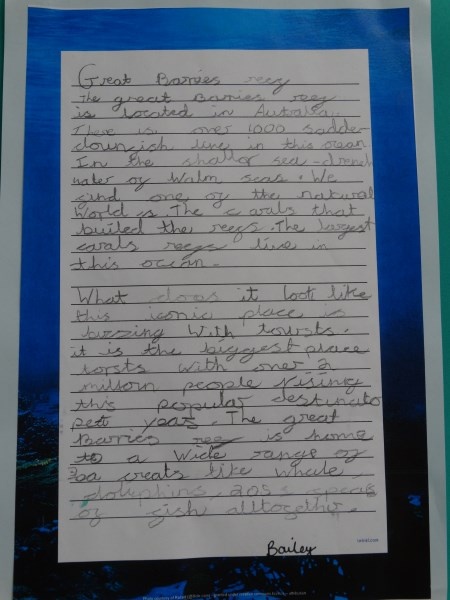 Great Barries reef
The great Barries reef
is located in Australia.
There is over 1000 sadde
clounfish live in this ocean
In the shallor sea-drench
water of Walm seas. We
find one of the natural
World s. The carals that
builed the reefs. The largest
carals reefs live in
this ocean.
What does it look like
this iconic place is
buzzing With tourists.
it is the biggest place
torsts with over 2
millsorn people visiting
this popular destinato
pet year. The great
Barries reef is home
to a Wide range of
creats like whale
dolphins
of fish alltogethr.
Bailey